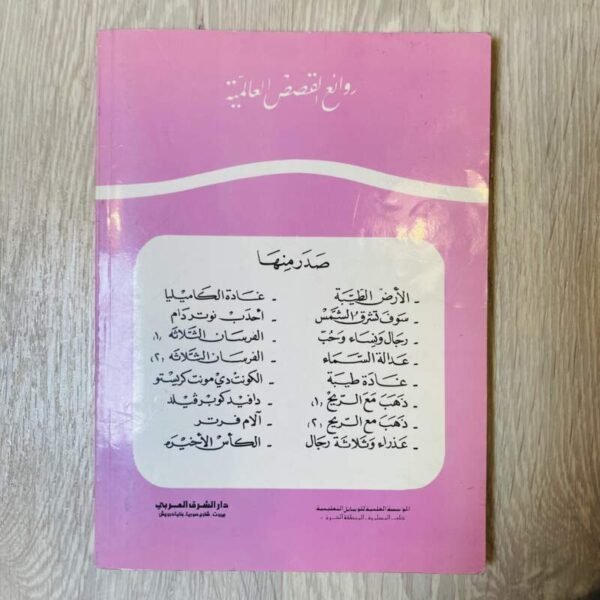 روائع القصص العالميّة
صَدَر مِنهَا
- الأرضُ الطَّيِّبَة
- سَوفَ تشرق الشَّمْس
- رجال ونِسَاء وَحُبّ
- عَدالة السَّمَاء
- غادة طيبة
- ذهَبَ مَعَ الرّيح (١)
- ذهَبَ مع الرّيح (٢)
- عذراء وَثلاثة رجال
- غادة الكاميليا
- أحدَب نوتردَام
- الفرسان الثّلاثه (١)
- الفرسان الثّلاثه (٢)
- الكونت دي مونت كريستو
- دافيد كوبرفيلد
- آلام فرتر
- الكأس الأخيره
المؤسسة العلمية للوسايل التعليمية
حلب
دار الشرق العربي
بيروت، شارع سوريا، بناية درويش